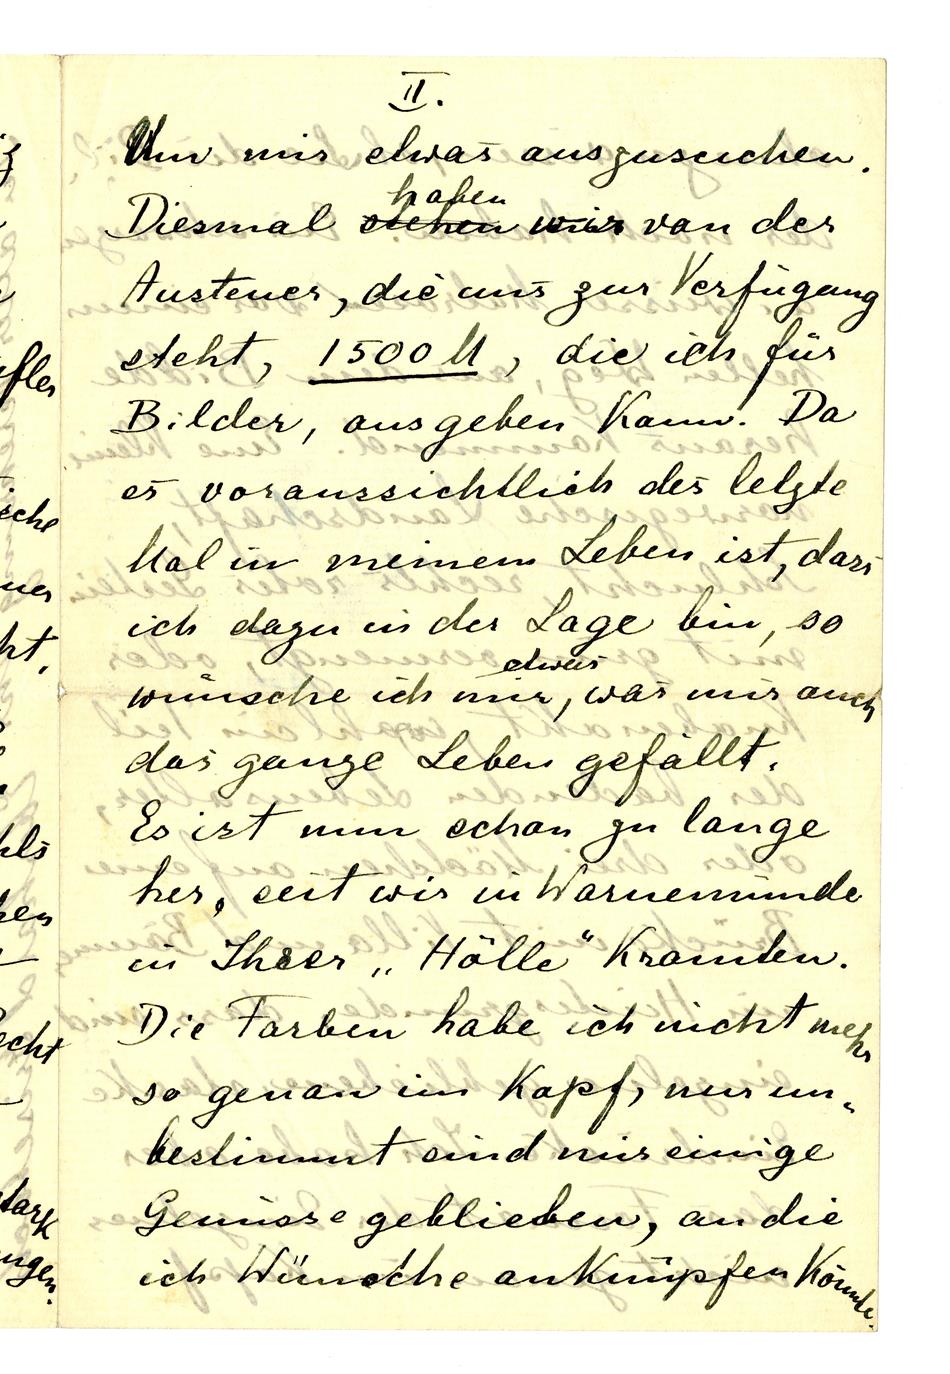 II.
Um mir etwas auszusuchen.
haben
Diesmal stehen wir von der
Austeuer, die uns zur Verfügung
steht, 1500 M, die ich für
Bilder, ausgeben Kann. Da
es voraussichtlich des letzte
Mal in meinem Leben ist, dass
ich dazu in der Lage bin, so
etwas
wünsche ich mir, was mir auch
das ganze Leben gefällt.
Es ist nun schon zu lange
her, seit wir in Warnemünde
in Ihrer „Hölle“ Kramten.
Die Farben habe ich nicht mehr
so genau im Kopf, nur un-
bestimmt sind mir einige
Genüsse geblieben, an die
ich Wünsche anKnüpfen Könnte.